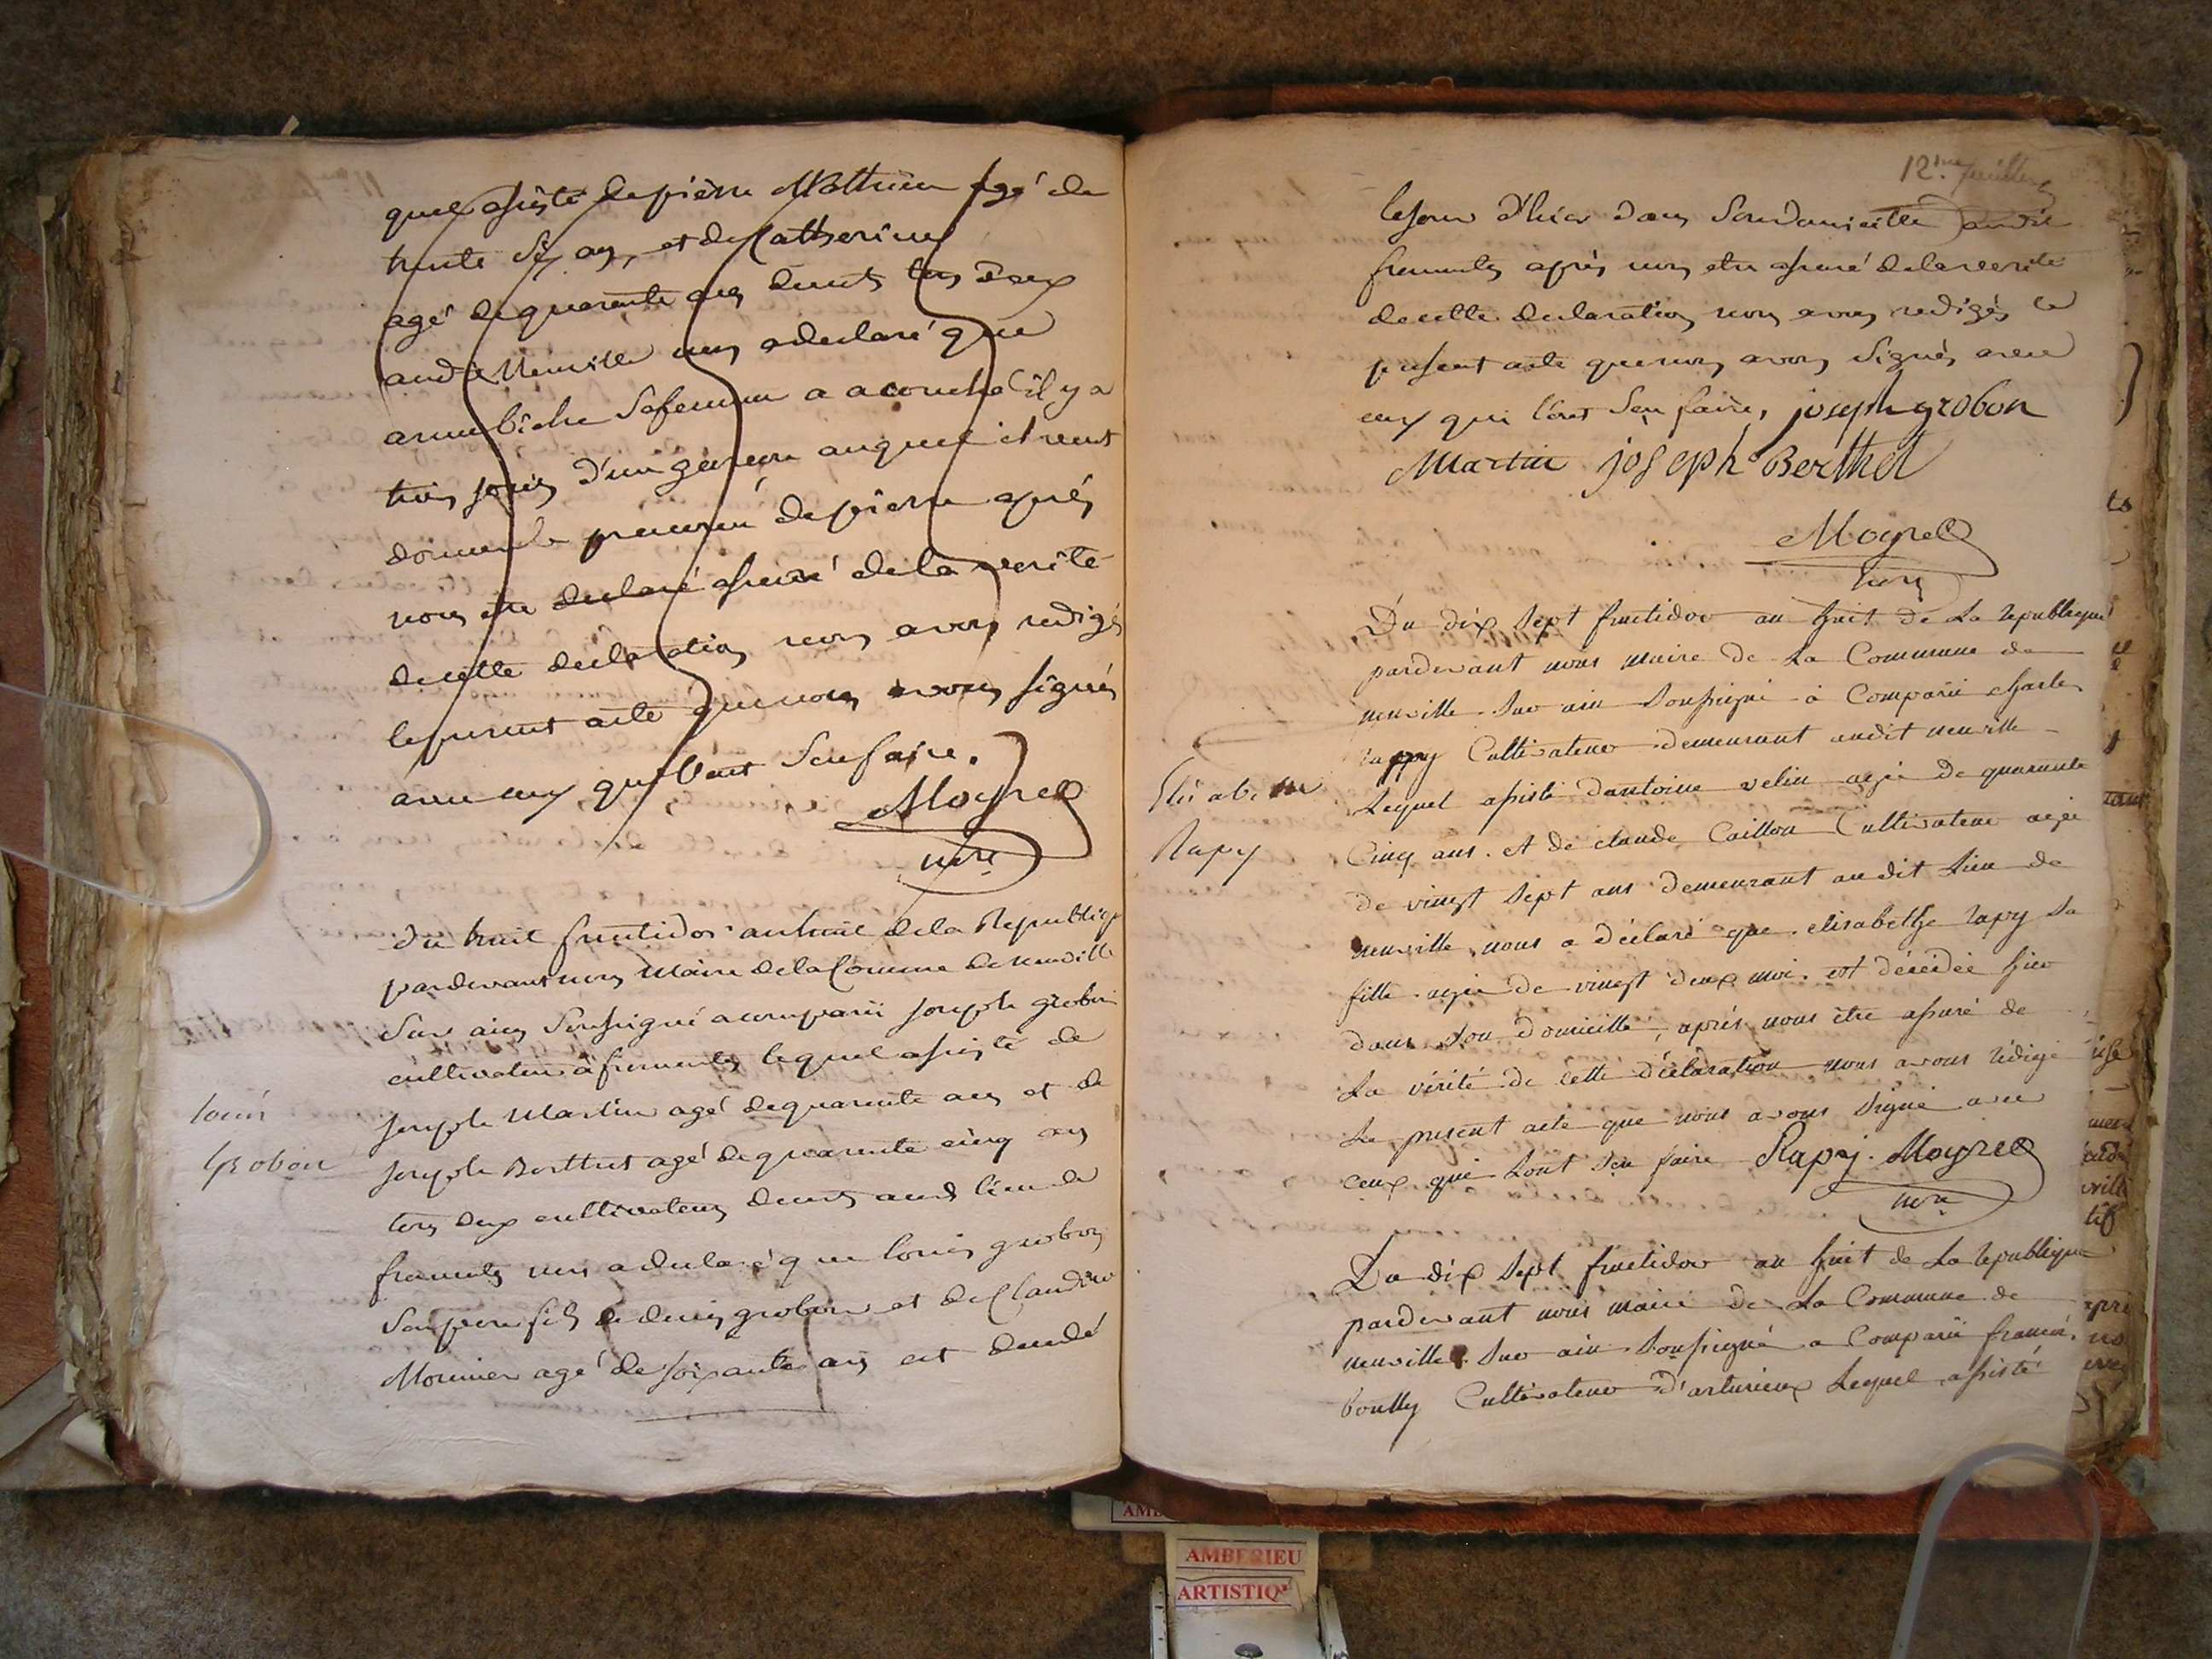 quel assisté de pierre Mathieu agé de
trente six ans, et de Catherine
agé de quarante ans demts tous deux
aud. Neuville nous a declaré que
anne biche sa femme a acouché il y a
trois jours d'un garçon auquel il veut
donner le prenom de pierre après
nous etre declaré assuré de la verité
de cette declaration nous avons redigés
le present acte que nous avons signés
avec ceux qui l'ont seu faire.
Moyret
mre
du huit fructidor an huit de la Republiq
pardevant nous Maire de la Comune de neuville
Sur ain Soussigné a comparü joseph grobon
cultivateur à fromente lequel assisté de
joseph Martin agé de quarante ans et de
joseph Berthet agé de quarante cinq ans
tous deux cultivateurs demts aud. lieu de
fromente nous a declaré que louis grobon
Son pere fils de denis grobon et de Claudine
Mornier agé de soixante ans est decedé
louis
Grobon
12.me feuillet
le jour d'hier dans Son domicille audit
fromente après nous etre assuré de la verité
de cette declaration nous avons redigés le
present acte que nous avons signés avec
ceux qui l'ont Seu faire, joseph grobon
Martin joseph Berthet
Moyret
mre
Du dix Sept fructidor an huit de La republique
pardevant nous maire de La Commune de
neuville Sur ain Soussigné à Comparü charle
rappy Cultivateur demeurant audit neuville
Lequel assisté dantoine velin agée de quarante
Cinq ans. et de claude Caillon Cultivateur agée
de vingt Sept ans demeurant audit Lieu de
neuville nous a déclaré que elisabethe rapy Sa
fille agée de vingt deux moi. est décédée hier
dans Son domicille, aprés nous être assuré de
La vérité de cette déclaration nous avons rédigé
Le present acte que nous avons Signé avec
Ceux qui Lont Seu faire Rapy. Moyret
mre
Elisabethe
Rapy
Du dix Sept fructidor an huit de La republique
pardevant nous maire de La Commune de
neuville Sur ain Soussigné a Comparü francoi.
boully Cultivateur d'arturieux Lequel assisté
AMBERIEU
ARTISTIQ